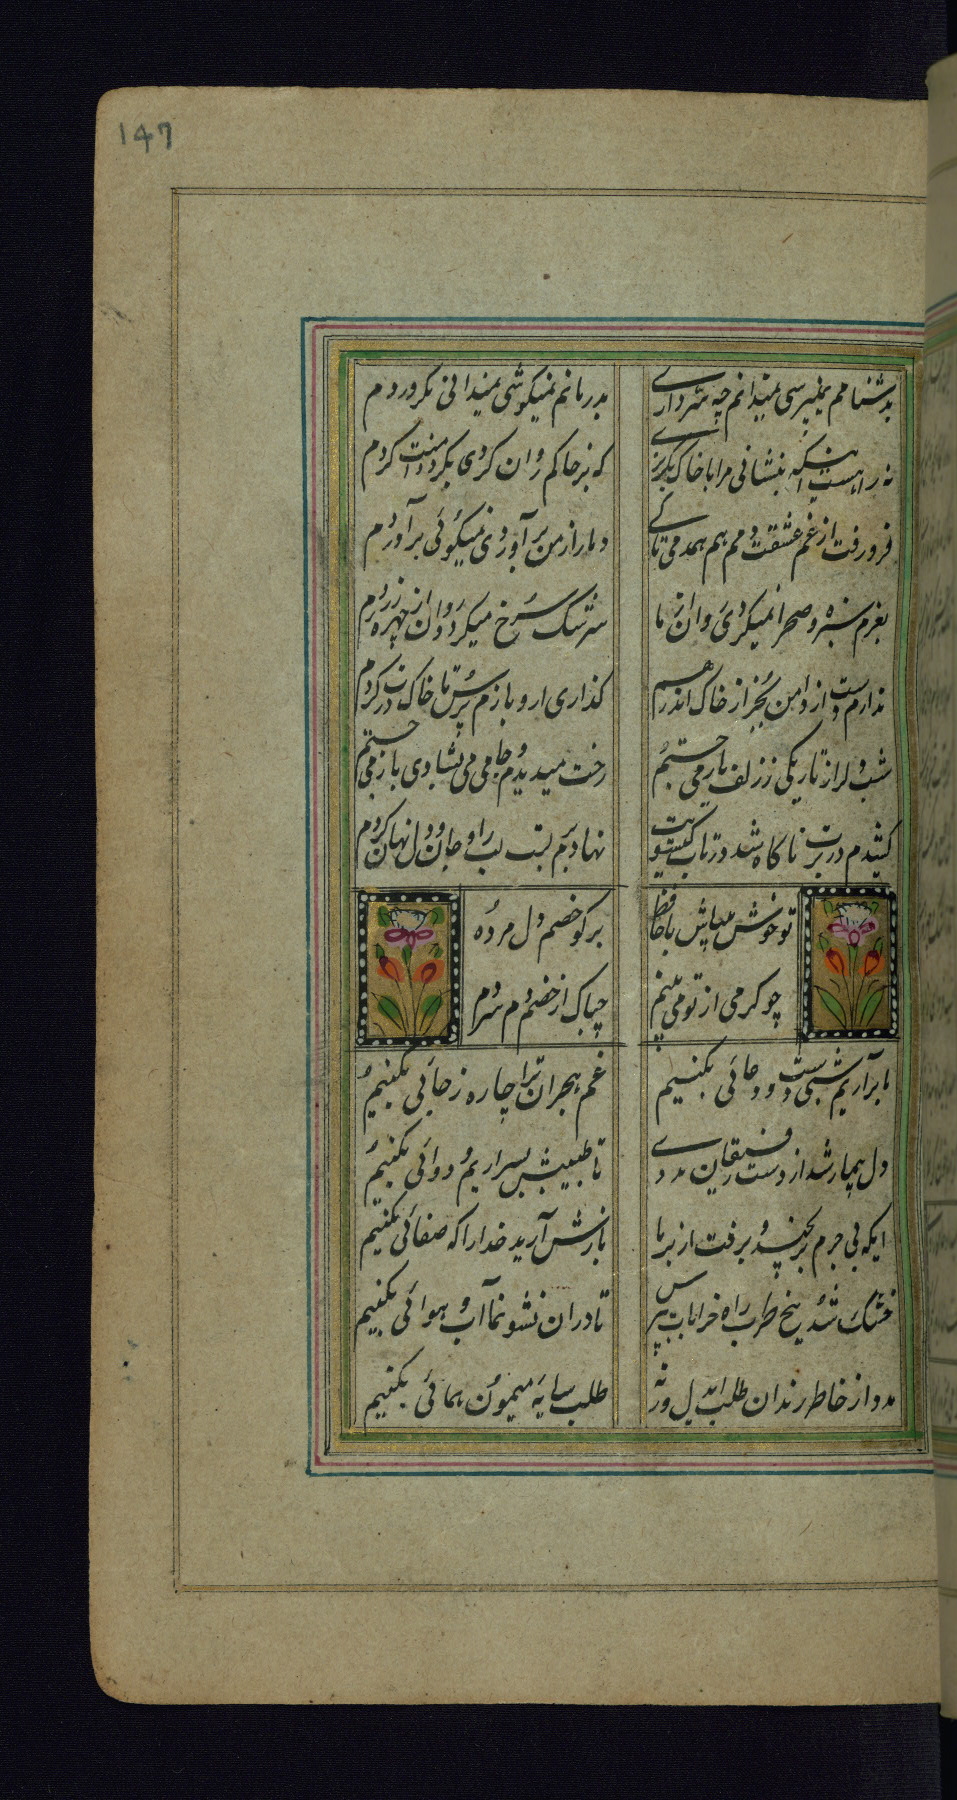 147
بدشنامم نمیپرسی نمیدانم چه سر داری بدرمانم نمیکوشی نمیدانی مکر دردم
نه راهست اینکه بنشانی مرا با خاک بکریزی که بر خاکم روان کردی بکرد دامنت کردم
فرو رفت از غم عشقت دمم هم همدمی تا کی دمار از من برآوردی نمیکوئی برآوردم
بغرم سبزه و صحرا نمیکردی روان از ما سرشک سرخ میکردد روان از چهره زردم
ندارم دستت از دامن بجز از خاک اندر هم کذاری ار و بازم پرس تا خاک درت کردم
شب دلرا ز تاریکی ز زلف یار می جستم رخت میدیدم و جامی می نشادی باز می جستم
کشیدم در برت ناکاه شد در تاب کیسویت نهادم بر لبت لب را و جان و دل نهان کردم
تو خوش میباش با حافظ برو کو خصم دل مرده
چو کرمی از تو می بینم چه باک از خصم دم سردم
ما برآریم شبی دست و دعائی بکنیم غم هجران ترا چاره ز جائی بکنیم
دل بیمار شد از دست رفیقان مددی تا طبیبش بسر آریم و دوائی بکنیم
ایکه بی جرم برنجید و برفت از بر ما بازش آرید خدا را که صفائی بکنیم
خشک شد بیخ طرب راه خرابات بپرس تا در ان نشو نما آب و هوائی بکنیم
مدد از خاطر رندان طلب ایدل ورنه طلب سایه میمون همائی بکنیم